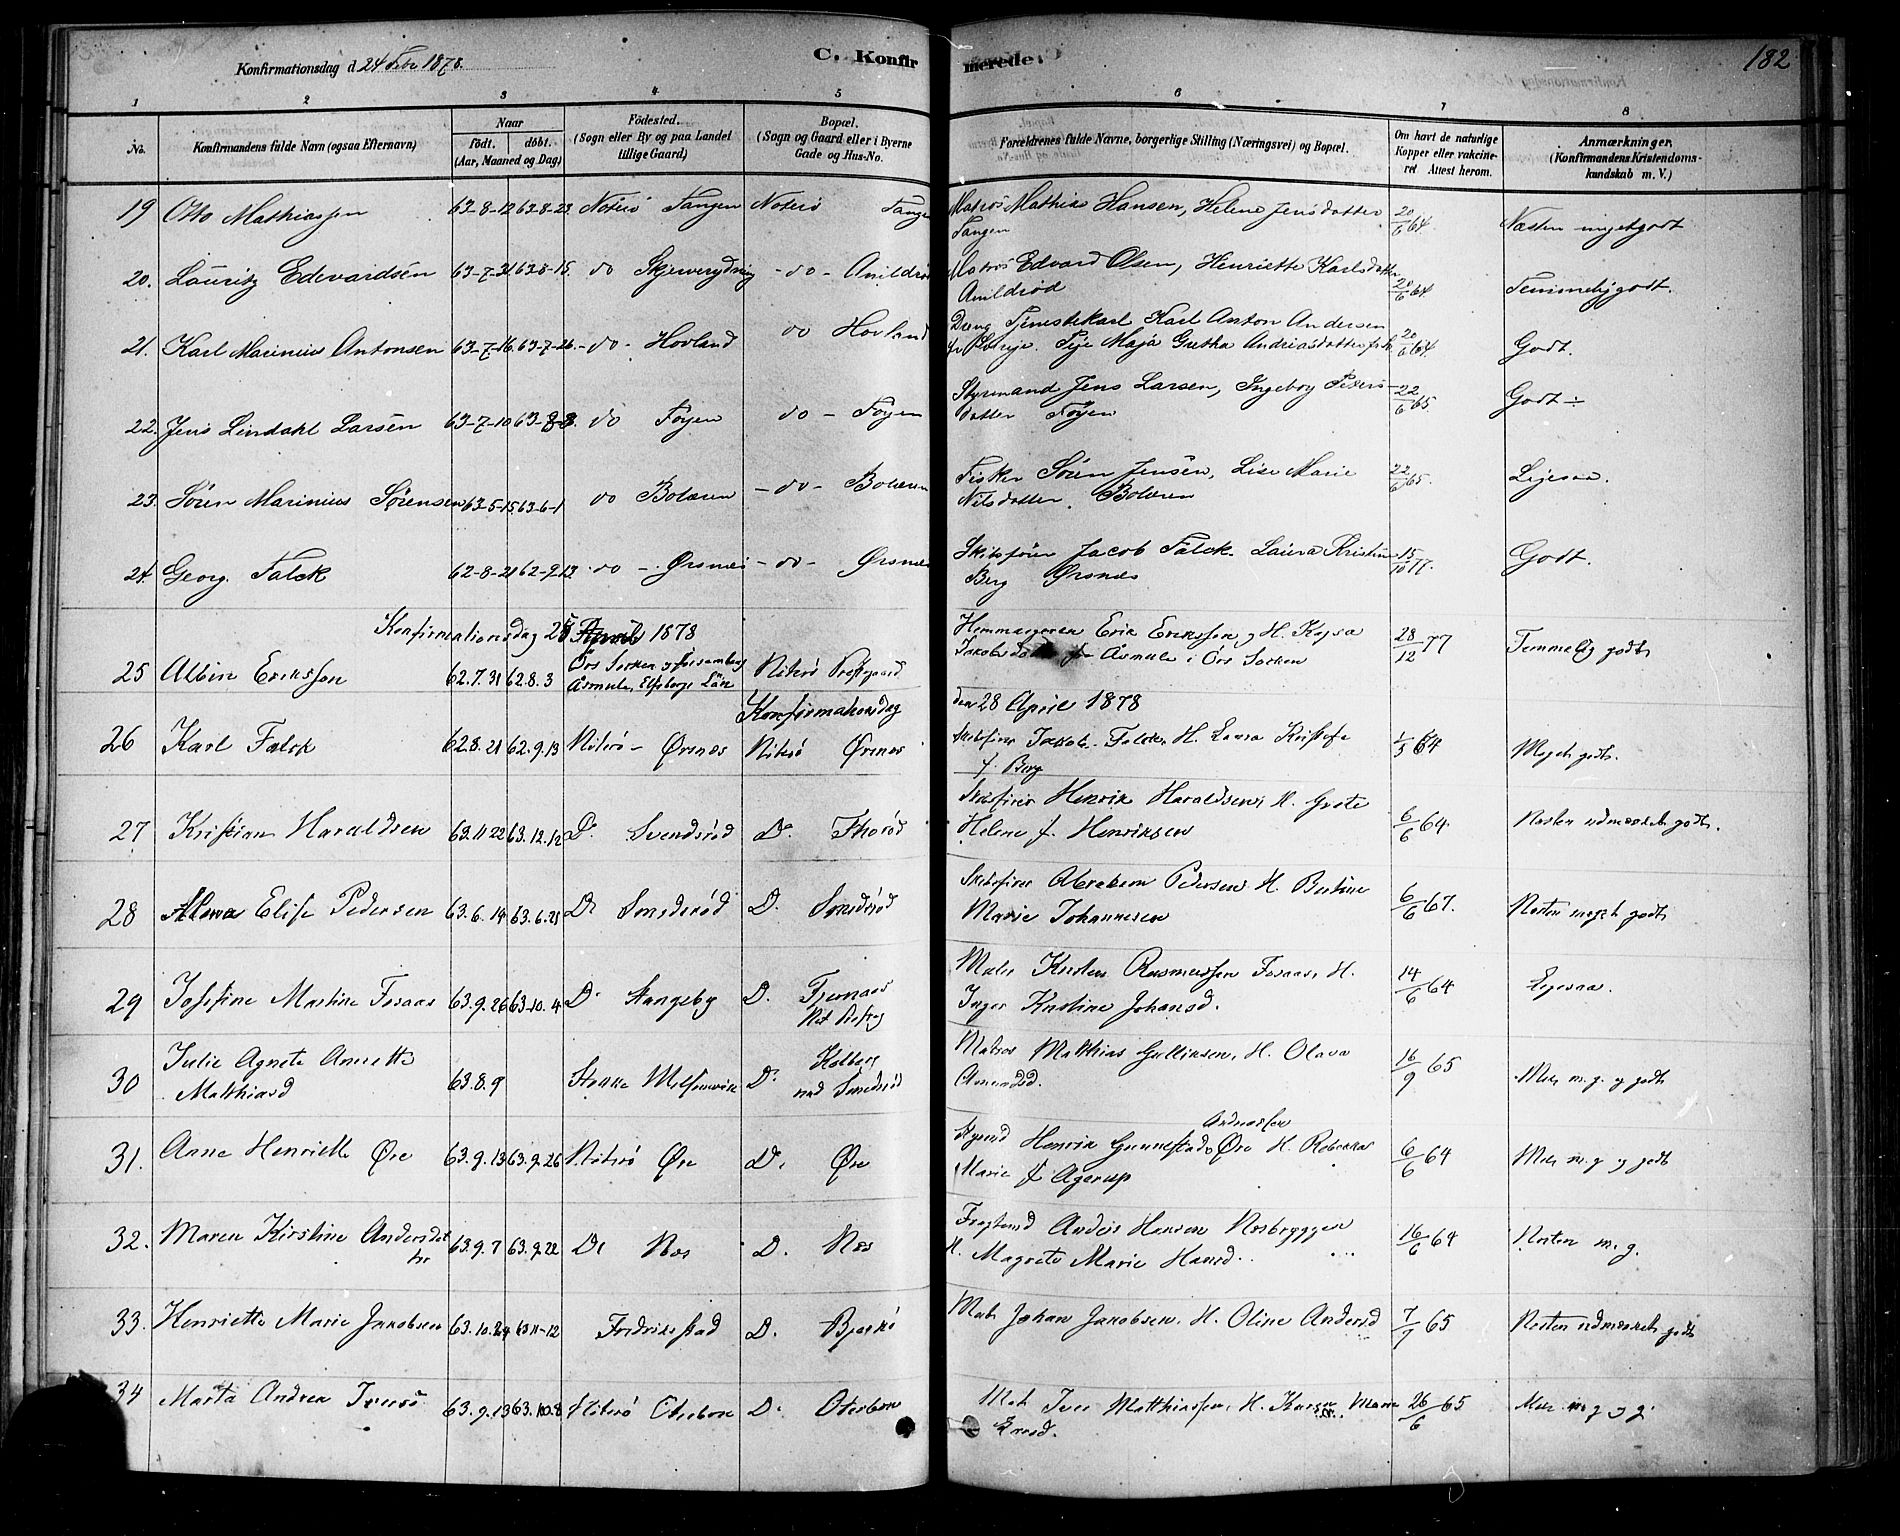 182
Konfirmationsdag d. 24 Febr 1878.
C. Konfirmerede.
1 2 3 4 5 6 7 8
No.
Konfirmandens fulde Navn (ogsaa Efternavn)
Naar
født. døbt.
(Aar, Maaned og Dag)
Fødested.
(Sogn eller By og paa Landet tillige Gaard)
Bopæl.
(Sogn og Gaard eller i Byerne Gade og Hus-No.
Forældrenes fulde Navne, borgerlige Stilling (Næringsvei) og Bopæl.
Om havt de naturlige Kopper eller vaccineret Attest herom.
Anmærkninger.
(Konfirmandens Kristendomskundskab m. V.)
19 Otto Mathiassen 63-8-12 63-8-23 Noterø Tangen Noterø Tangen Matros Mathias Hansen, Helene Jensdatter
Tangen 20/6 64. Næsten megetgodt
20. Lauritz Edevardsen 63-7-21 63-8-15 do - do - Matros Edvard Olsen, Henriette Karlsdatter
20/6 64. Temmeligodt.
21. Karl Marinius Antonsen 63-7-16 63-7-26 - do - Hovland do Hovland Tjenestekarl Karl Anton Andersen
Pige Maja Gretha Andriasdatter 20/6 64. Godt.
22. Jens Lindahl Larsen 63-7-10 63-8-8. do Føyen do - Føyen Styrmand Jens Larsen, Ingeborg Peders-
datter Føyen 22/6 65 Godt ÷
23. Søren Marinius Sørensen 63-5-15 63-6-1 do Bolæren - do - Bolæren Fisker Søren Jensen, Lise Marie
Nilsdatter. Bolæren 22/6 65. Ligesaa.
24. Georg Falck 62-8-21 62-9-13 do - Ørsnes - do - Ørsnes Skibsfører Jacob Falck. Laura Kristine
Berg Ørsnes 15/10 77. Godt.
Konfirmationsdag 28 April 1878
25 Albin Eriksson 62.7.31 62.8.3 Örs Soken og Forsamling
Åsmule, Elfsborgs Län Nøterø Prestgaard Hemmansegeren Erik Eriksson og H. Kajsa
Åsmule i Örs Socken 28/12 77 Temmelig godt
Konfirmationsdag den 28 April 1878
26 Karl Falck 62.8.21 62.9.13 Nøterø - Ørsnes Nøterø Ørsnes Skibsfører Jakob Falck, H. Laura
f. Berg 1/5 64 Meget godt.
27 Kristian Haraldsen 63.11.22 63.12.12 D. Svendsrød D. Thorød Skibsfører Henrik Haraldsen, H. Grete
Helene f. Henriksen 6/6 64. Næsten udmærket godt.
28 Elise Pedersen 63.6.14 63.6.21 D. Smidsrød D. Smidsrød Skibsfører Abraham Pedersen H. Bertine
Marie Johannesen 6/6 67. Næsten meget godt
29 Josefine Martine Foraas 63.9.26 63.10.4 D. Stangeby D. Tjernaas
Not Prestg Maler Kristen Rasmussen Foraas, H.
Inger Kristine Johansd. 14/6 64 Ligesaa.
30 Julie Agnete Annette
Matthiasd 63.8.9 Stokke Melsomvik D. Kolberg
ved Smidsrød Matros Matthias Gulliksen, H. Olava
Amundsd. 16/9 65 Mell m. g. og godt
31. Anne Henriette Øre 63.9.13 63.9.26 Nøterø Øre D. Øre Styrmd Henrik Gunnestad Andreassen Øre H. Rebekka
Marie f Agerup 6/6 64 Mell m. g og godt
32. Maren Kirstine Andersdat
ter 63.9.7 63.9.22 D. Nes D. Nes Fragtmd Anders Hansen Nesbryggen
H. Magrete Marie Hansd. 16/6 64 Næsten m. g.
33. Henriette Marie Jakobsen 63.10.24 63 11-12 Fredrikstad D. Bjerkø Matr Johan Jakobsen. H. Oline Andersd 7/7 65 Næsten udmærket godt
34 Marta Andrea Iversd 63.9.13 63.10.8 Nøterø Oterbæk D. Oterbæk Mat Iver Matthiassen, H. Karen Marie
26/6 65 Mell m g og g.